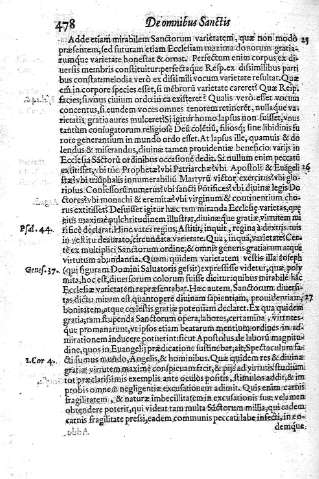 478 De omnibus Sanctis
Adde etiam mirabilem Sanctorum varietatem, quæ non modo 25
præsentem, sed futuram etiam Ecclesiam maxima donorum gratia-
rumque varietate honestat & ornat. Perfectum enim corpus ex di-
versis membris constituitur: perfectaque Resp. ex dissimilibus parti
bus constat: melodia verò ex dissimili vocum varietate resultat. Quæ
enim in corpore species esset, si mébrorū varietate careret? Quæ Reip.
facies; si unius civium ordo in ea existeret? Qualis verò esset vocum
concentus, si eundem voces omnes tenorem retinerét, nullaque va-
rietatis gratia aures mulceret? Si igitur homo lapsus non fuisset, unus
tantùm conjugatorum religiosè Deū colétiū, filiosq; sine libidinis fu
rore generantium in mundo ordo esset. At lapsus ille, quamuis & do
lendus & miserandus, divinæ tamen providentiæ beneficio varijs in
Ecclesia Sāctorū ordinibus occasionē dedit. Si nullum enim peccatū
extitisset, ubi tūc Prophetæ? ubi Patriarchæ? ubi Apostoli & Evāgeli 26
stæ? ubi triūphalis innumerabiliū Martyrū victor exercitus? ubi glo-
riosus Confessorū numerus? ubi sancti Pōtifices? ubi divinæ legis Do
ctores? ubi monachi & eremitæ? ubi virginum & continentium, cho-
rus extitisset? Defuisset igitur hæc tam miranda Ecclesiæ varietas, quæ
eius maximè pulchritudinem illustrat, divinæque gratiæ virtutem mi
Psal. 44. rificè declarat. Hinc vates regius, Astitit, inquit, regina à dextris tuis
in vestitu deaurato, circundata varietate. Qua, inquá, varietate? Cer-
tè ex multiplici Sanctorum ordine, & omnis generis gratiarum atque
virtutum abundantia. Quam quidem varietatem vestis illa Ioseph
Genes. 37. (qui figuram Domini Salvatoris gessit) expressisse videtur, quæ poly
mita, hoc est, diversorum colorum fuisse dicitur: quibus mirabilē hæc
Ecclesiæ varietatē sit repræsentabat. Hæc autem Sanctorum diversi-
tas dictu mirum est quantopere divinam sapientiam, providentiam, 27
bonitatem, atque cælestis gratiæ potentiam declaret. Ex qua quidem
gratia, tam stupenda Sanctorum opera, labores, certamina, virtutes-
que promanarunt, ut ipsos etiam beatarum mentium ordines in ad-
mirationem inducere potuerint: sicut Apostolus de laborū magnitu-
dine, quos in Evangelij prædicatione sustinebat, ait, Spectaculum fa-
1. Cor 4. cti sumus mundo, Angelis, & hominibus. Quæ quidem res & divinæ
gratiæ virtutem maximè conspicuam facit, & pijs ad virtutis studium
tot præclarissimis exemplis ante oculos positis, stimulos addit, & im
probis omnē negligentiæ excusationem adimit. Quis enim carnis
fragilitatem, & naturæ imbecillitatem in excusationis suæ velamen
obtendere poterit, qui videat tam multa Sāctorum millia, qui eadem
carnis fragilitate pressi, eademq communis peccati labe infecti, in eo-
demque